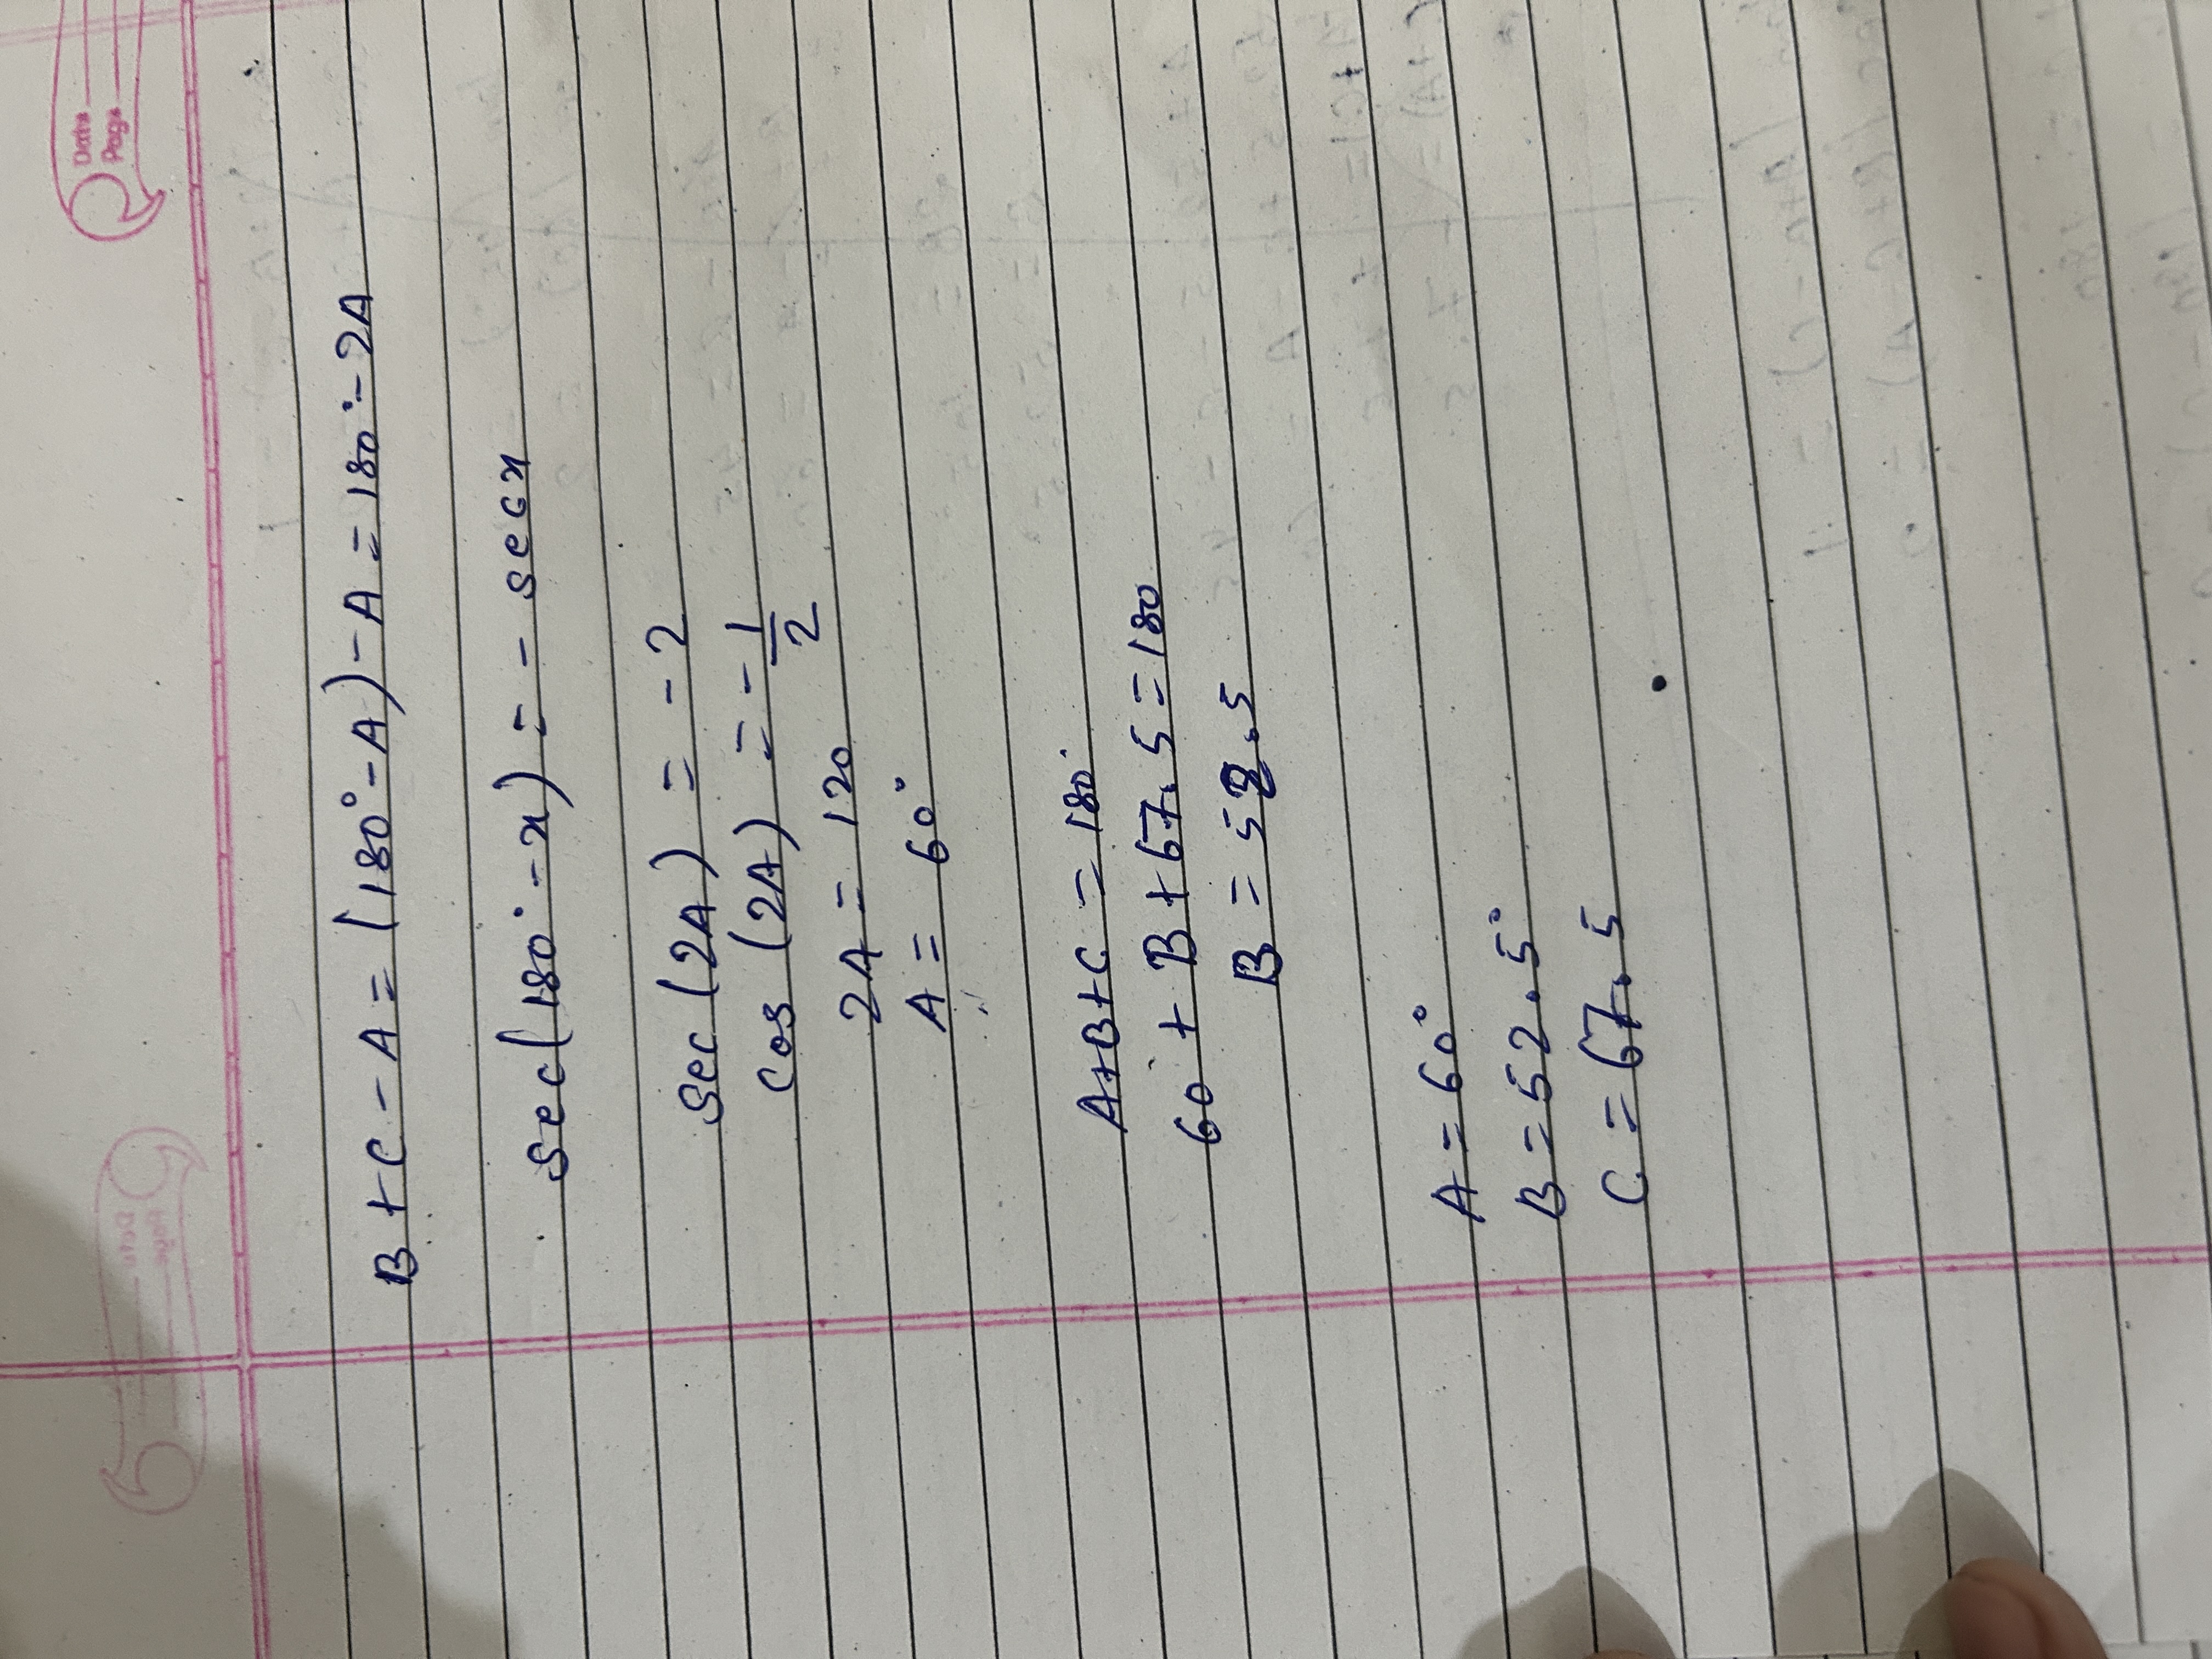 Date
Page
B + C - A = (180° - A) - A = 180° - 2A
sec(180° - x) = - secx
sec (2A) = - 2
Cos (2A) = - 1/2
2A = 120
A = 60°
A+B+C = 180°
60 + B + 67.5 = 180
B = 52.5
A = 60°
B = 52.5°
C = 67.5